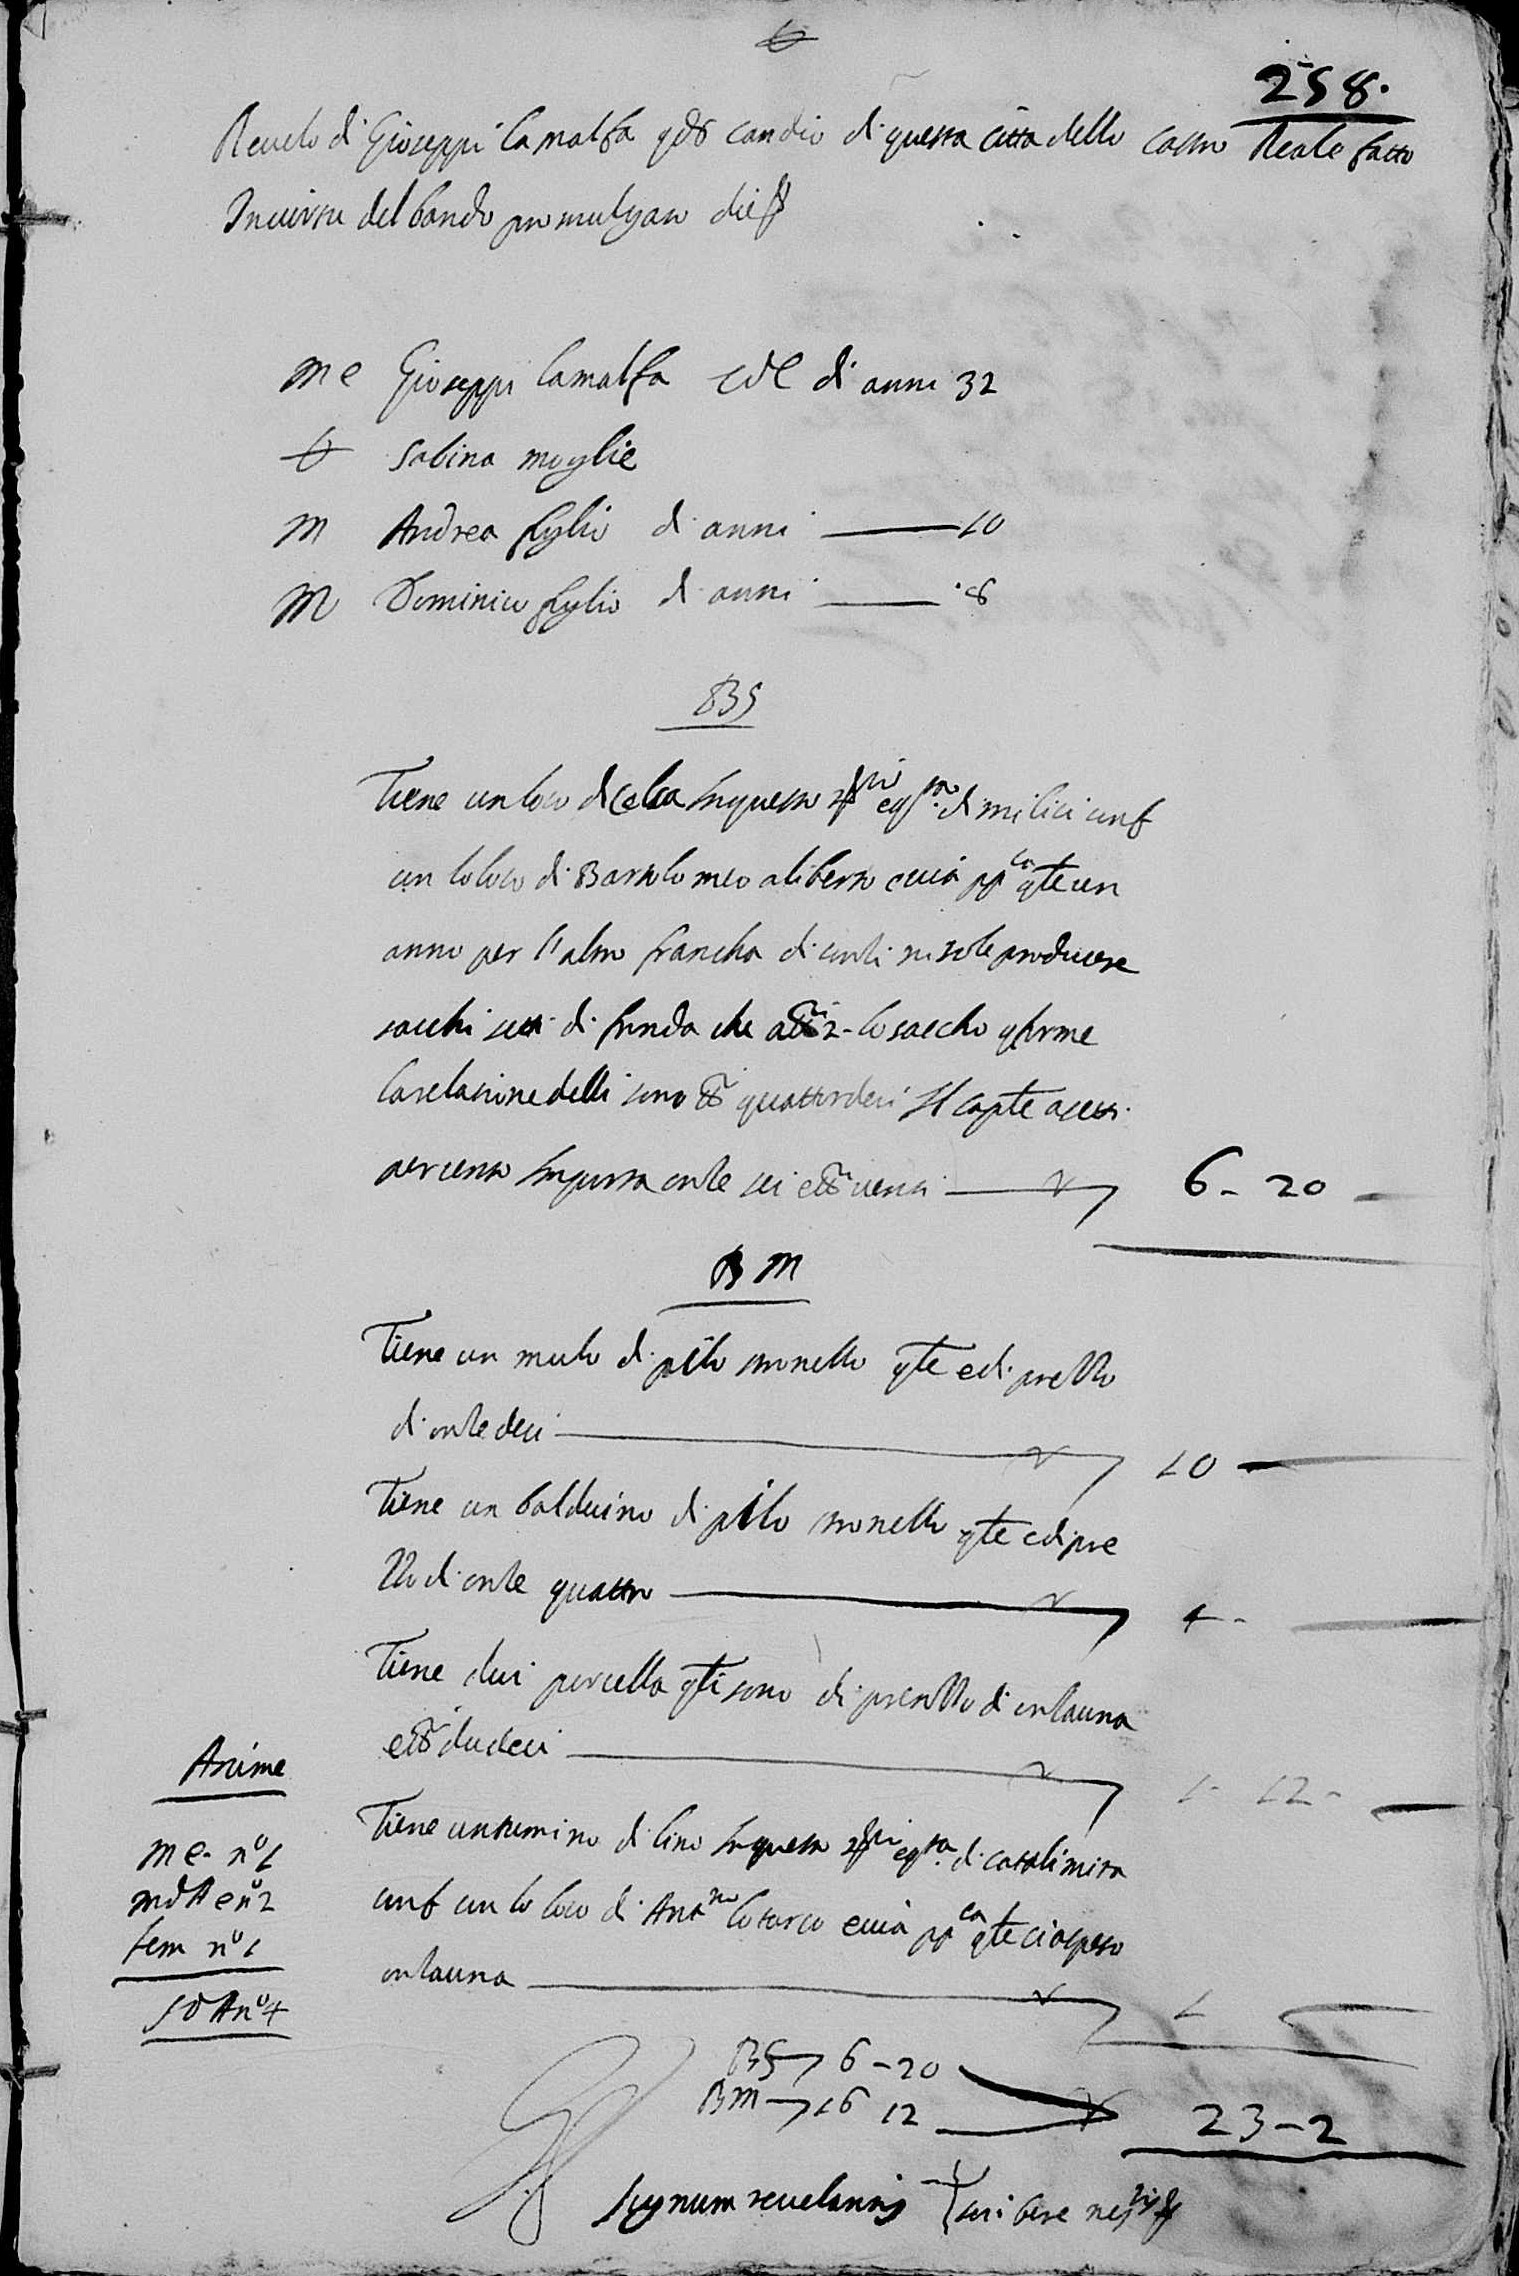 258.
Revelo di Gioseppi la malfa qd candio di questa citta dello castro Reale fatto
In virtu del bando promulgato die
me Gioseppi lamalfa cdc di anni 32
Sabina moglie
m Andrea figlio di anni 10
m Dominico figlio di anni 8
BS
Tiene un loco di celsa In questo eqta di milici conf
con lo loco di Bartolomeo aliberto cuia qte un
anno per l'altro francha di conti ni sole producere
sacchi setti di frunda che a tt 2 - lo saccho conforme
la relacione delli sono tt quattordeci Il capte a setti
per cento Importa onze sei e tt venti 6 - 20 -
BM
Tiene un mulo di pilo morello qte e di prezzo
di onze deci 10
Tiene un balduino di pilo morello qte e di pre
zzo di onze quattro 4 -
Tiene dui porcella qti sono di prezzo di onza una
e tt dudeci 1 - 12 -
Tiene un tumino di lino In questo eqta di catalimita
conf con lo loco di Antno lo turco cuia qte ci a speso
onza una 1
Anime
me - no 1
mdA e no 2
fem no 1
sdA no 4
BS 6 - 20
BM 16 12
23 - 2
Signum revelantis scribere